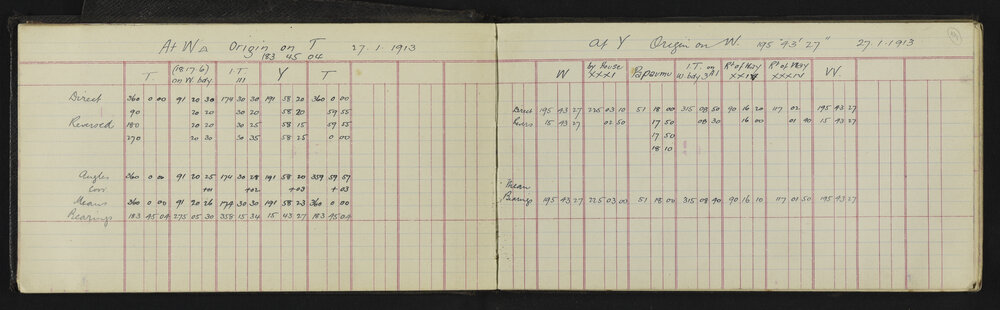 At W Origin on T 27.1.1913
183 45 04
T (1817.6) on W. bdy I.T. III Y T
Direct 360 0 00 91 20 30 174 30 30 191 58 20 360 0 00
90 20 20 30 20 58 20 59 55
Reversed 180 20 20 30 25 58 15 59 55
270 20 30 30 35 58 25 0 00
Angles 360 0 00 91 20 25 174 30 28 191 58 20 359 59 57
Corr +01 +02 +03 +03
Means 360 0 00 91 20 26 174 30 30 191 58 23 360 0 00
Bearings 183 45 04 275 05 30 358 15 34 15 43 27 183 45 04
At Y Origin on W. 195° 43' 27" 27.1.1913
W by House XXXI Papamu I.T. on W bdy 3A1 Rt of Way Rt of Way XXXIV W.
Direct 195 43 27 225 03 10 51 18 00 315 08 50 90 16 20 117 02 195 43 27
Revers 15 43 27 02 50 17 50 08 30 16 00 01 40 15 43 27
17 50
18 10
Mean
Bearings 195 43 27 225 03 00 51 18 00 315 08 40 90 16 10 117 01 50 195 43 27